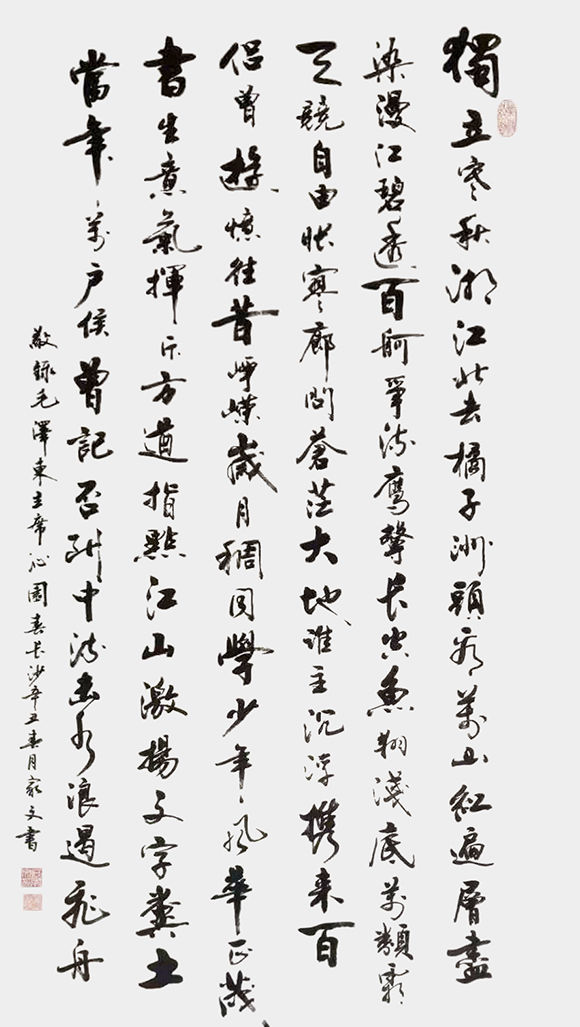 獨立寒秋湘江北去橘子洲頭看萬山紅遍層盡
染漫江碧透百舸爭流鷹擊長空魚翔淺底萬類霜
天競自由悵寥廓問蒼茫大地誰主沉浮攜來百
侶曾遊憶往昔崢嶸歲月稠同學少年風華正茂
書生意氣揮斥方遒指點江山激揚文字糞土
當年萬戶侯曾記否到中流擊水浪遏飛舟
敬錄毛澤東主席沁園春長沙辛丑春月家文書